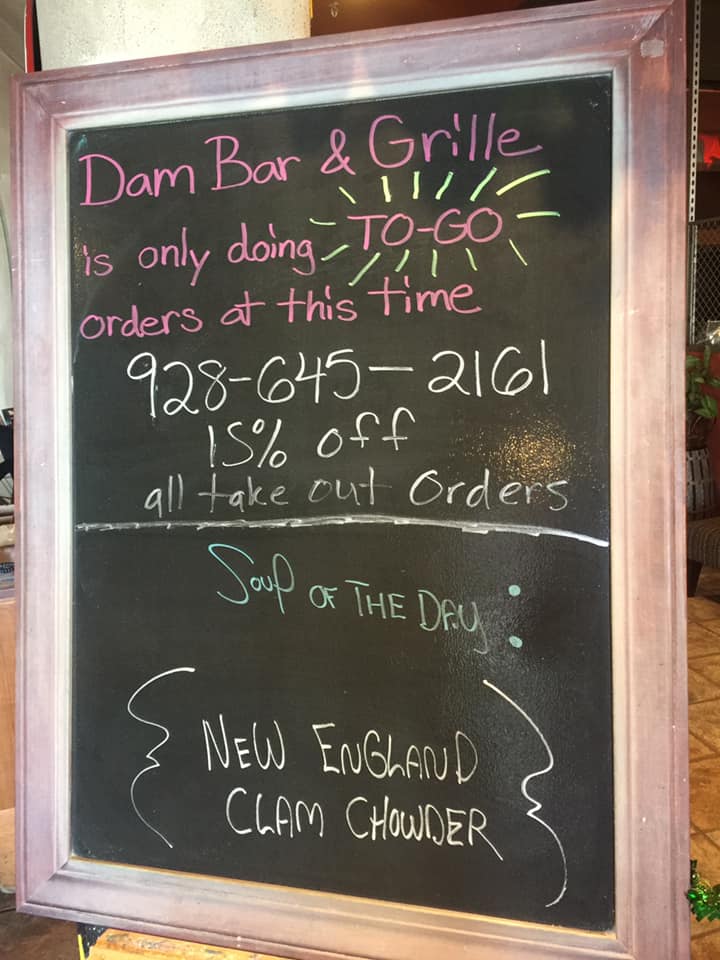 Dam Bar & Grille
is only doing TO-GO
orders at this time
928-645-2161
15% off
all take out Orders
Soup OF THE DAY:
{ NEW ENGLAND
CLAM CHOWDER }